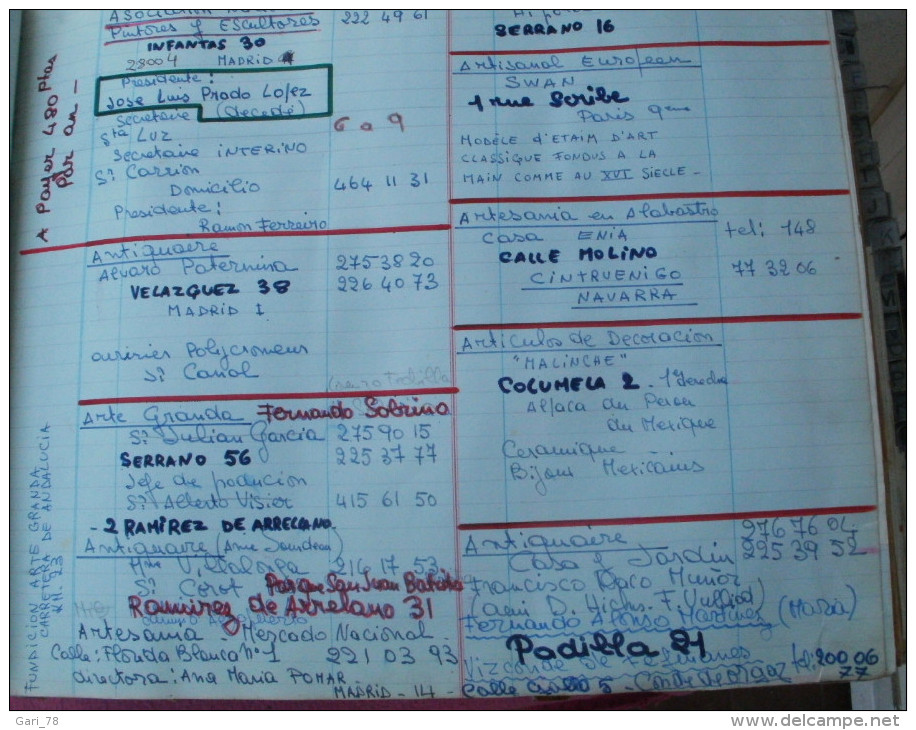 Pintores y Escultores 222 49 61
INFANTAS 30
28004 MADRID
Presidente:
Jose Luis Prado Lopez
Secretaire (decedé)
Sta Luz 6 a 9
Secretaire INTERINO
Sr. Carrion
Domicilio 464 11 31
Presidente:
Ramon Ferreiro
A Payer 480 Ptas
Par an -
Antiquaire
Alvaro Paternina 275 38 20
VELAZQUEZ 38 226 40 73
MADRID 1
Polycromeur
Sr. Canal
Arte Granda Fernando Sobrino
Sr. Julian Garcia 275 90 15
SERRANO 56 225 37 77
Jefe de producion
Sr. Alberto Visier 415 61 50
- 2 RAMIREZ DE ARRELLANO.
FUNDICION ARTE GRANDA
CARRETERA DE ANDALUCIA
KM. 23
Antiquaire
Mme Villalonga 214 17 53
Sr. Corot Parque San Juan Batista
Ramirez de Arrelano 31
Artesania - Mercado Nacional
Calle: Florida Blanca nº 1 221 03 93
directora: Ana Maria POMAR
MADRID - 14 -
SERRANO 16
Artisanal European
SWAN
1 rue Scribe
Paris 9eme
MODÈLE d'ETAIM D'ART
CLASSIQUE FONDUS A LA
MAIN COMME AU XVI SIECLE -
Artesania en Alabastro
Casa ENIA tel: 148
CALLE MOLINO
CINTRUENIGO 77 32 06
NAVARRA
Articulos de Decoracion
"MALINCHE"
COLUMELA 2 - 1º derecha
Alpaca du Perou
du Mexique
Ceramique -
Bijoux Mexicains
276 76 04
Antiquaire 225 39 52
Casa y Jardin
Francisco Paco Muñoz
Fernando Alfonso Martinez (Maria)
Padilla 21
Vizconde de
tel: 200 06
77
Gari_78
www.delcampe.net